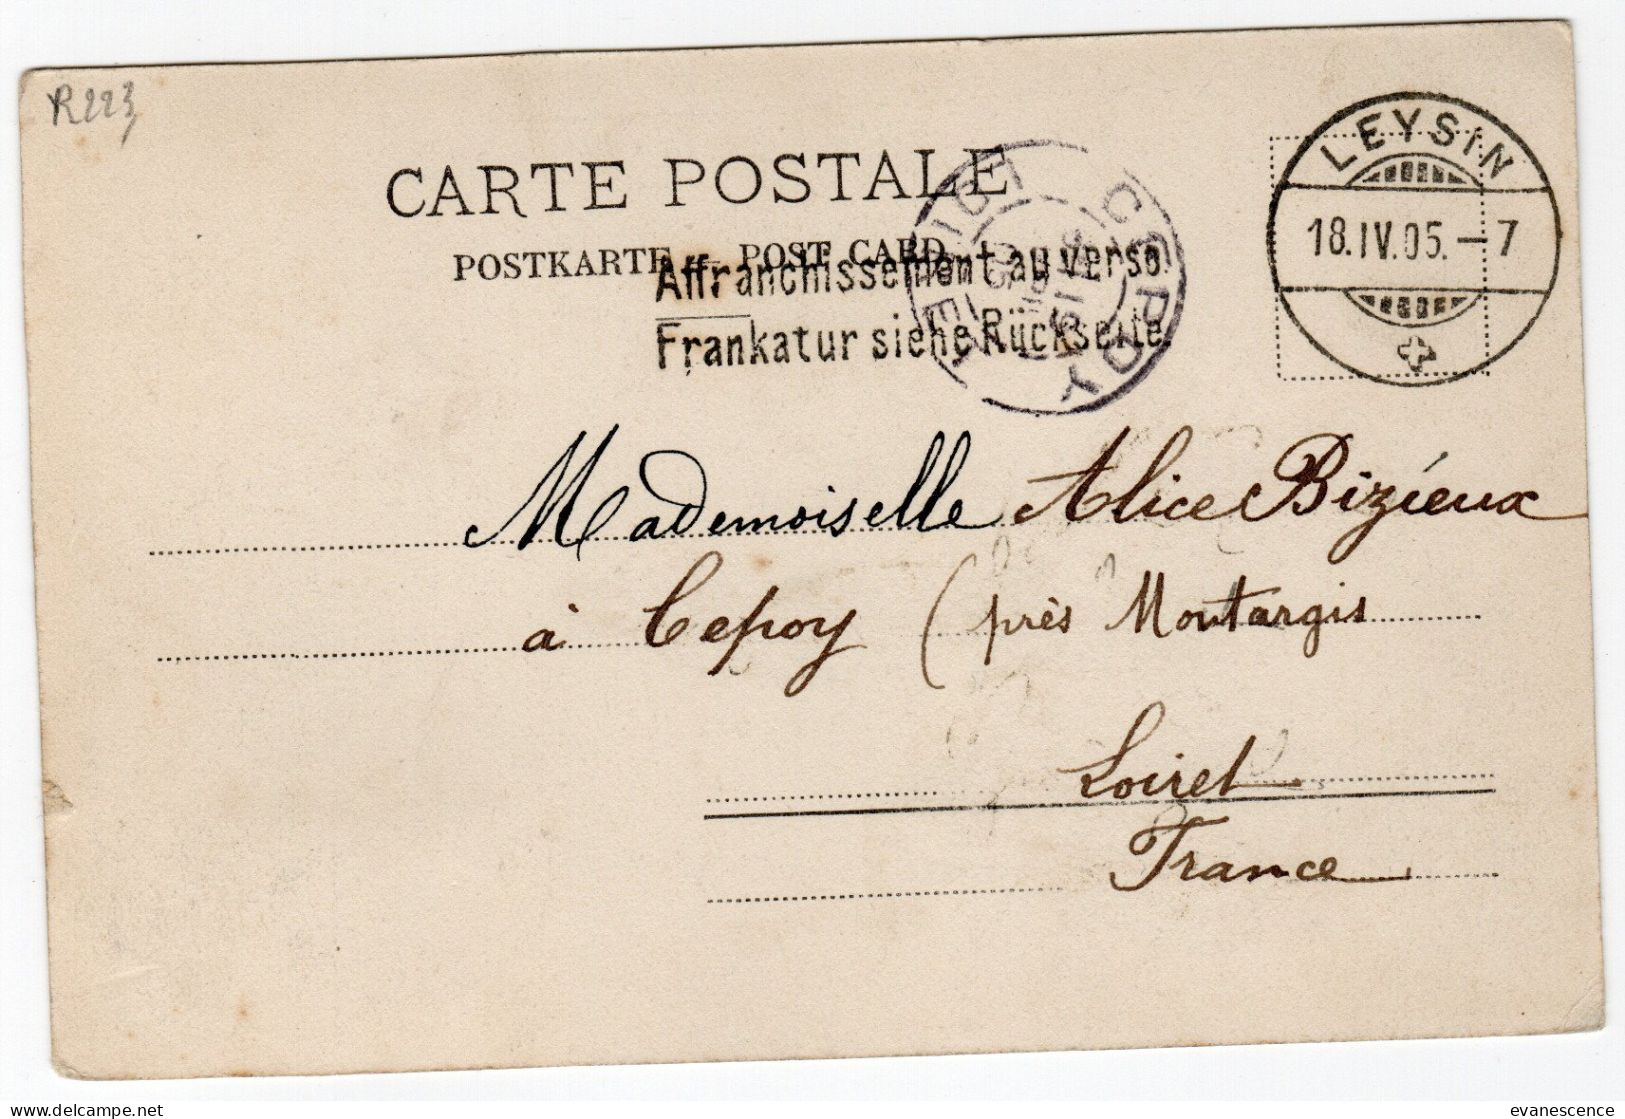 R223
CARTE POSTALE
POSTKARTE – POST CARD
Affranchissement au verso.
Frankatur siehe Rückseite.
LEYSIN
18.IV.05.–7
CEPOY
LOIRET
Mademoiselle Alice Bizíeux
à Cepoy (près Montargis
Loiret
France
evanescence